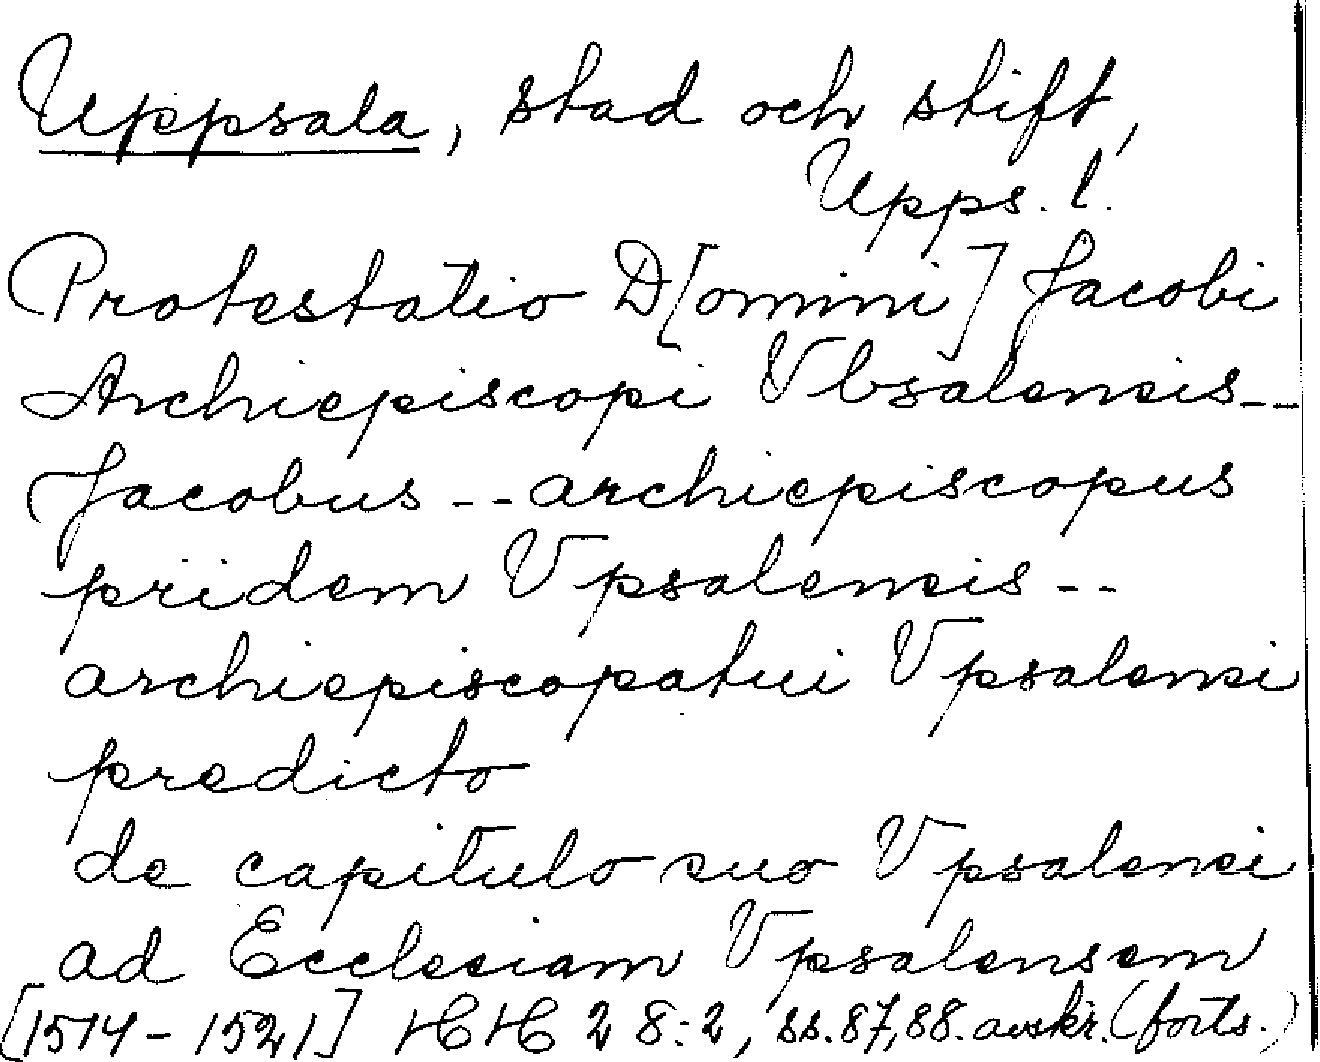 Uppsala, stad och stift,
Upps. l.
Protestatio D[omini] Jacobi
Archiepiscopi Vbsalensis--
Jacobus -- archiepiscopus
pridem Vpsalensis --
archiepiscopatui Vpsalensi
predicto
de capitulo suo Vpsalensi
ad Ecclesiam Vpsalensem
[1514-1521] HH 28:2, ss. 87,88. avskr. (forts.)